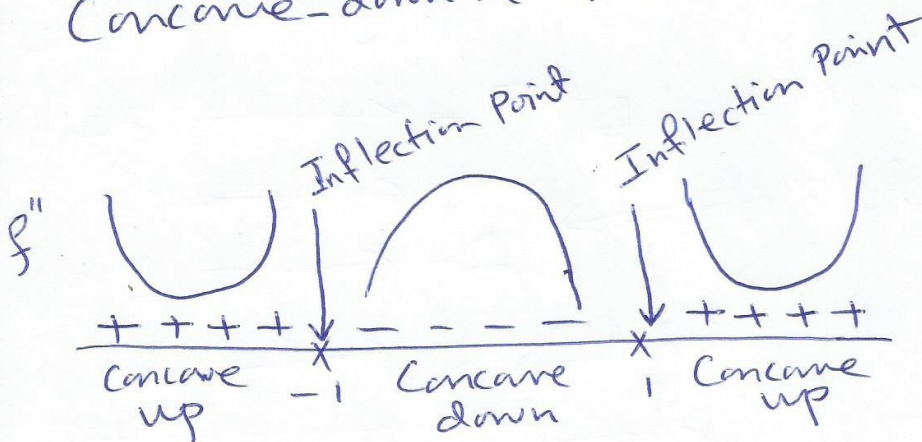 Concave-down
Inflection Point
Inflection Point
f"
+ + + + - - - - + + + +
x x
Concave up -1 Concave down 1 Concave up